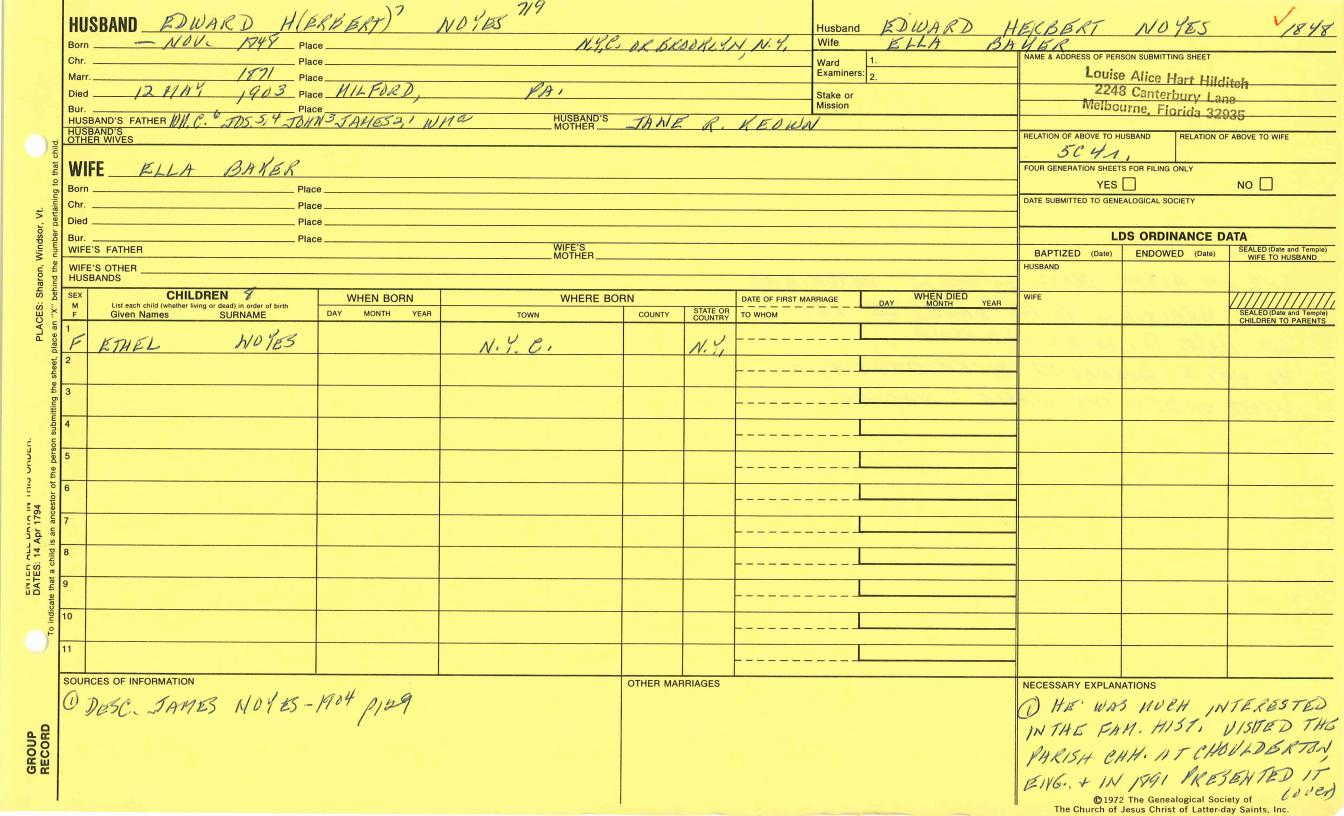 HUSBAND EDWARD H(ERBERT)7 NOYES 719
Born — NOV. 1848 Place N.Y.C. OR BROOKLYN, N.Y.
Chr. Place
Marr. 1871 Place
Died 12 MAY 1903 Place MILFORD, PA.
Bur. Place
HUSBAND'S FATHER WM. C.6 JOS.5,4 JOHN3 JAMES2,1 WMa HUSBAND'S MOTHER JANE R. KEOWN
HUSBAND'S OTHER WIVES
WIFE ELLA BAKER
Born Place
Chr. Place
Died Place
Bur. Place
WIFE'S FATHER WIFE'S MOTHER
WIFE'S OTHER HUSBANDS
Husband EDWARD HERBERT NOYES 1848
Wife ELLA BAKER
Ward Examiners: 1.
2.
Stake or Mission
NAME & ADDRESS OF PERSON SUBMITTING SHEET
Louise Alice Hart Hilditch
2248 Canterbury Lane
Melbourne, Florida 32935
RELATION OF ABOVE TO HUSBAND RELATION OF ABOVE TO WIFE
5C 4r.
FOUR GENERATION SHEETS FOR FILING ONLY
YES NO
DATE SUBMITTED TO GENEALOGICAL SOCIETY
LDS ORDINANCE DATA
BAPTIZED (Date) ENDOWED (Date) SEALED (Date and Temple) WIFE TO HUSBAND
HUSBAND
WIFE
SEALED (Date and Temple) CHILDREN TO PARENTS
SEX M F
CHILDREN 8
List each child (whether living or dead) in order of birth
Given Names SURNAME
WHEN BORN
DAY MONTH YEAR
WHERE BORN
TOWN COUNTY STATE OR COUNTRY
DATE OF FIRST MARRIAGE
TO WHOM
WHEN DIED
DAY MONTH YEAR
1 F ETHEL NOYES N.Y.C. N.Y.
2
3
4
5
6
7
8
9
10
11
SOURCES OF INFORMATION
① DESC. JAMES NOYES - 1904 p129
OTHER MARRIAGES
NECESSARY EXPLANATIONS
① HE WAS MUCH INTERESTED
IN THE FAM. HIST. VISITED THE
PARISH CHH. AT CHOULDERTON,
ENG. + IN 1891 PRESENTED IT
(over)
©1972 The Genealogical Society of
The Church of Jesus Christ of Latter-day Saints, Inc.
PLACES: Sharon, Windsor, Vt.
ENTER ALL DATA IN THIS ORDER:
DATES: 14 Apr 1794
To indicate that a child is an ancestor of the person submitting the sheet, place an "X" behind the number pertaining to that child.
GROUP
RECORD